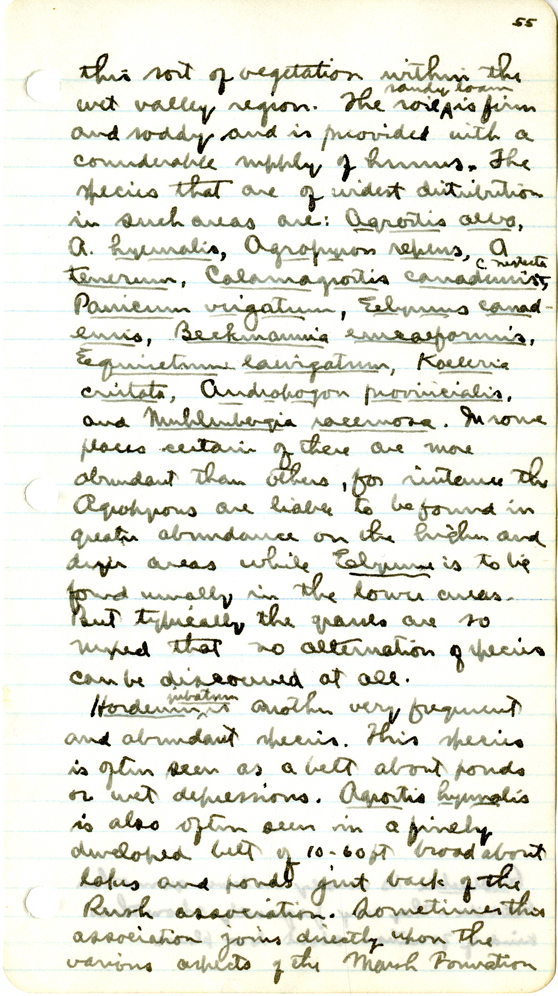 55
this sort of vegetation within the
wet valley region. The soil ^ sandy loam is firm
and soddy and is provided with a
considerable supply of humus. The
species that are of widest distribution
in such areas are: Agrostis alba,
A. hyemalis, Agropyron repens, A
tenerum, Calamagrostis canadensis, C. neglecta
Panicum virgatum, Elymus canad-
ensis, Beckmannia erucaeformis,
Equisetum laevigatum, Koeleria
cristata, Andropogon provincialis,
and Muhlenbergia racemosa. In some
places certain of these are more
abundant than others, for instance the
Agropyrons are liable to be found in
greater abundance on the higher and
dryer areas while Elymus is to be
found usually in the lower areas.
But typically the grasses are so
mixed that no alternation of species
can be discovered at all.
Hordeum ^ jubatum is another very frequent
and abundant species. This species
is often seen as a belt about ponds
or wet depressions. Agrostis hyemalis
is also often seen in a finely
developed belt of 10-60 ft broad about
lakes and ponds just back of the
Rush association. Sometimes this
association joins directly upon the
various aspects of the Marsh Formation